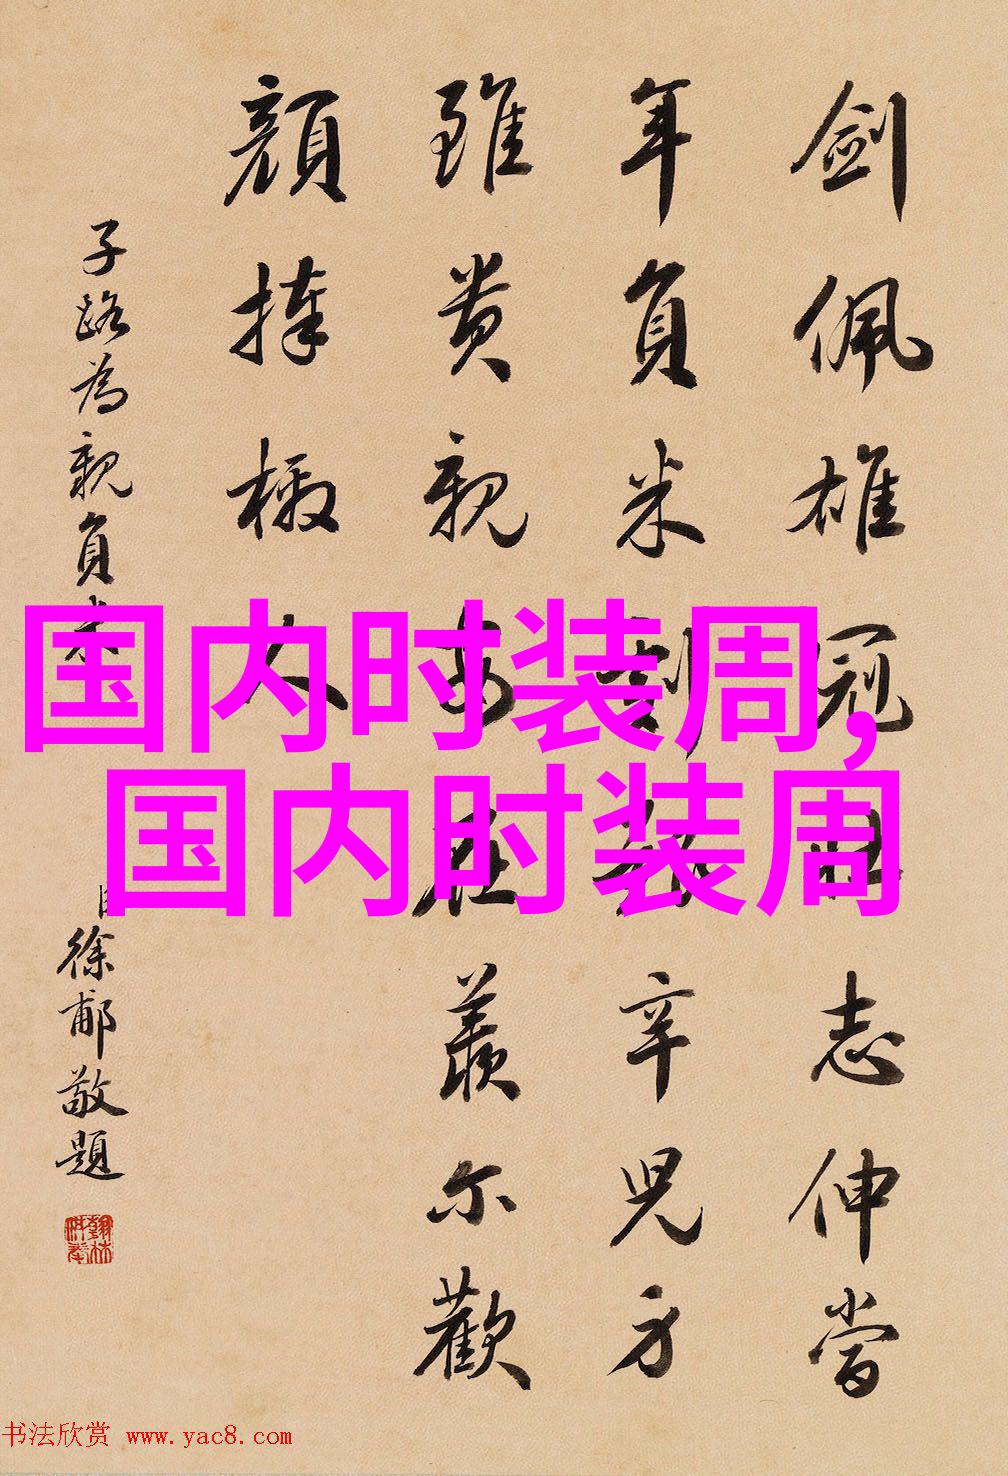 劍佩雄冠志伸當
年負米辛兒方
雖貴親安在羨爾歡
顏捧檄人
子路為親負米
徐郙敬題
国内时装周,
国内时装周
书法欣赏 www.yac8.com